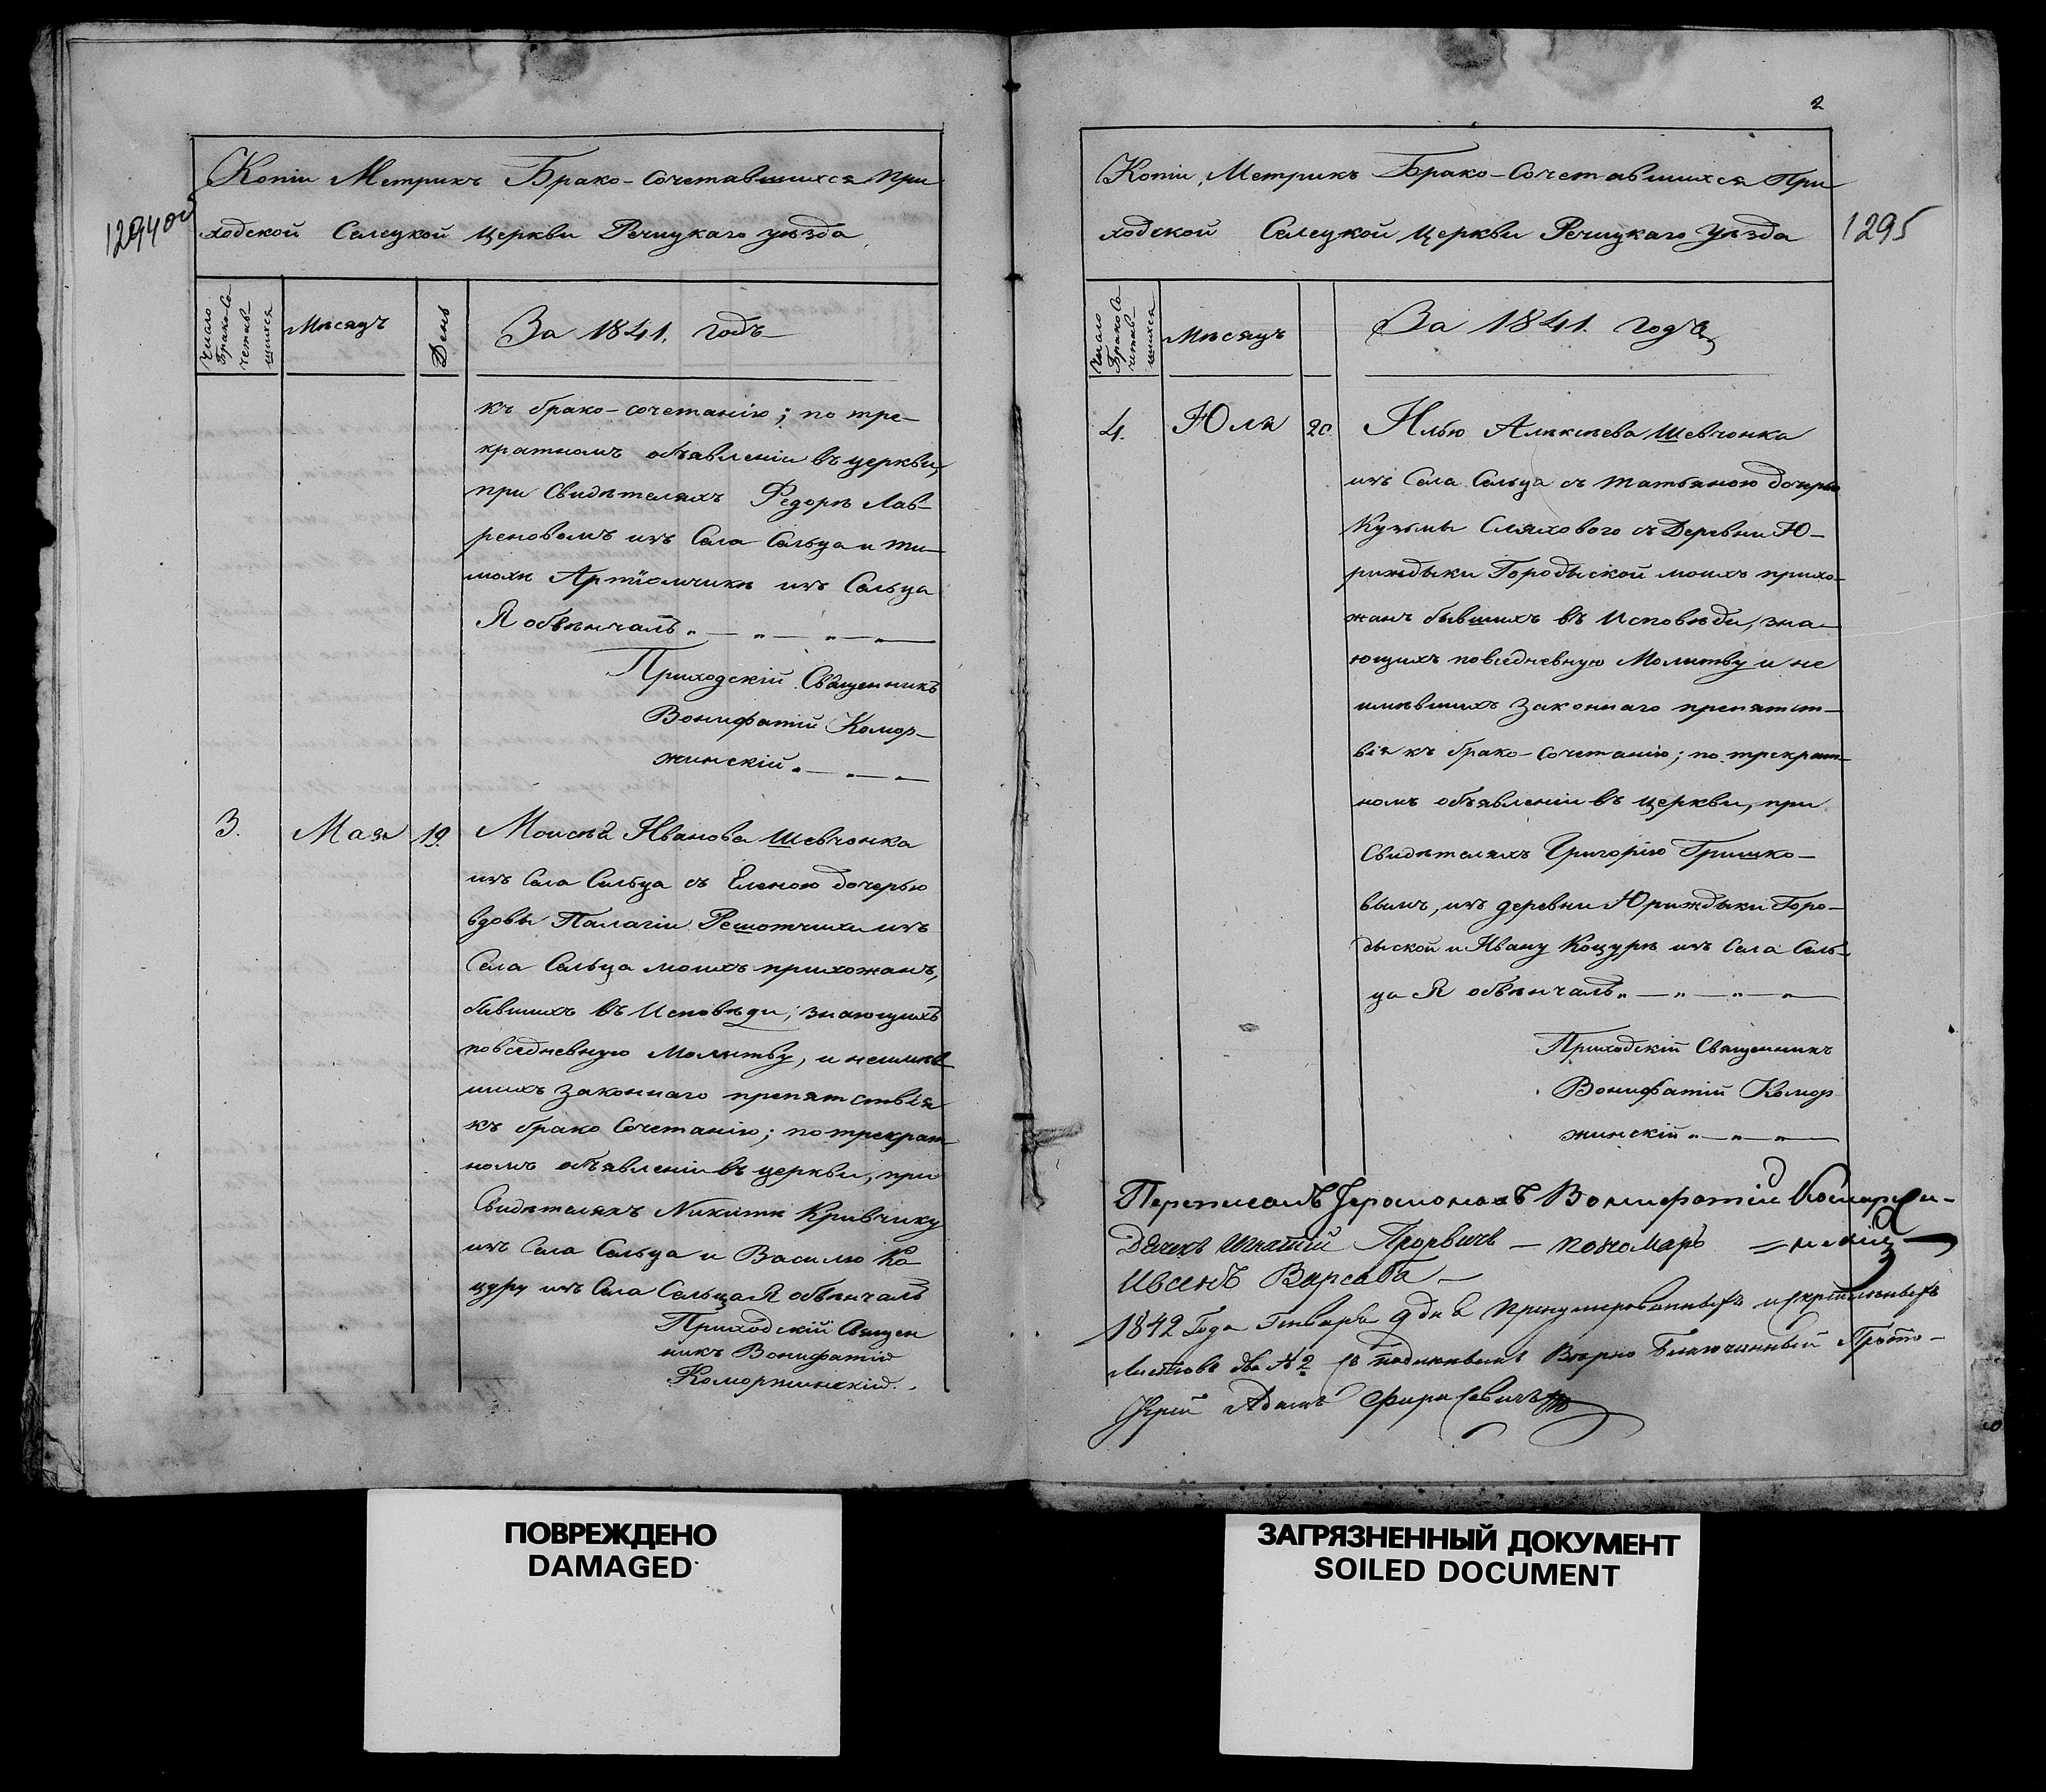 1294об
Копіи Метрикъ Брако-Сочетавшихся При
ходской Селецкой Церкви Речицкаго уѣзда
Число Брако-Со четав шихся
Мѣсяцъ
День
За 1841. годъ
къ брако-сочетанію; по тре-
кратномъ объявленіи въ церкви,
при Свидѣтеляхъ Ѳедорѣ Лав-
реновомъ изъ Села Сельца и Ти-
мохѣ Артіомчикѣ изъ Сельца
Я обвѣнчалъ
Приходскій Священникъ
Вонифатій Комор-
жинскій
3. Мая 19. Моисѣя Иванова Шевчонка
изъ Села Сельца съ Еленою дочерью
вдовы Палагіи Решотчихи изъ
Села Сельца моихъ прихожанъ,
бывшихъ въ Исповѣди, знающихъ
повседневную Молитву, и неимѣв
шихъ законнаго препятствія
къ брако Сочетанію; по трекрат
номъ объявленіи въ церкви, при
Свидѣтеляхъ Никитѣ Кривчику
изъ Села Сельца и Василю Ко
цуру изъ Села Сельца Я обвѣнчалъ
Приходскій Священ
никъ Вонифатій
Коморжинскій.
2
1295
Копіи Метрикъ Брако-Сочетавшихся При
ходской Селецкой Церкви Речицкаго Уѣзда
Число Брако Со четав- шихся
Мѣсяцъ
За 1841. года
4. Юля 20. Илью Алексѣева Шевчонка
изъ Села Сельца съ Татьяною дочерью
Кузьмы Сляхового съ Деревни Ю-
риждыки Городыской моихъ прихо-
жанъ бывшихъ въ Исповѣди, зна-
ющихъ повседневную Молитву и не
имѣвшихъ законнаго препятст-
вія къ брако-сочетанію; по трекрат-
номъ объявленіи въ церкви, при
Свидѣтеляхъ Григорію Гришко-
вымъ, изъ деревни Юриждыки Горо-
дыской и Ивану Коцурѣ изъ Села Сель-
ца Я обвѣнчалъ
Приходскій Священникъ
Вонифатій Комор
жинскій
Переписалъ Іеромонахъ Вонифатій Коморжи-
Дячекъ Игнатій — пономаръ =нскій
Варсаба
1842 Года Генваря 9 дня пронумерованныхъ и скрѣпленныхъ
Листовъ два № 2 съ подлиннымъ Вѣрно Благочинный Прото-
Іерей Адамъ
ПОВРЕЖДЕНО
DAMAGED
ЗАГРЯЗНЕННЫЙ ДОКУМЕНТ
SOILED DOCUMENT